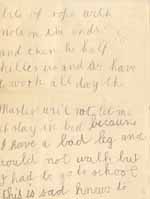 of rope with
on the ends
and then he half
kilies us and we have
to work all day the
Master wi'l not let me
stay in bed because
I have a bad leg and
could not walk but
I had to go to school
this is sad to